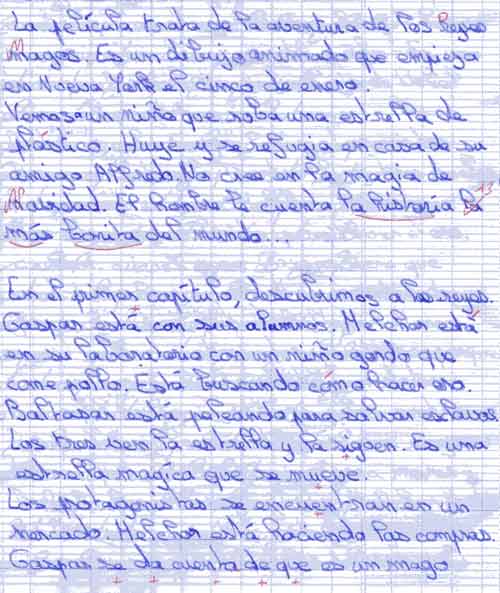 La película trata de la aventura de los Reyes
Magos. Es un dibujo animado que empieza
en Nueva York el cinco de enero.
Vemos a un niño que roba una estrella de
plástico. Huye y se refugia en casa de su
amigo Alfredo. No cree en la magia de
Navidad. El hombre le cuenta la historia la
más bonita del mundo...
En el primer capítulo, descubrimos a los reyes.
Gaspar está con sus alumnos. Melchor está
en su laboratorio con un niño gordo que
come pollo. Está buscando cómo hacer oro.
Baltasar está peleando para salvar esclavos.
Los tres ven la estrella y la siguen. Es una
estrella magica que se mueve.
Los protagonistas se encuentran en un
mercado. Melchor está haciendo las compras.
Gaspar se da cuenta de que es un mago